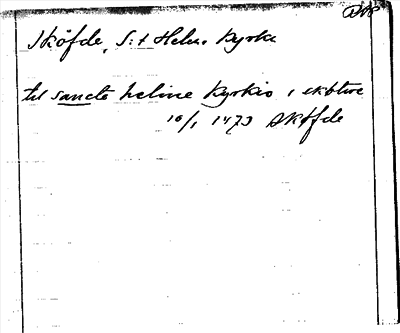 Sköfde, S:t Hel:s Kyrka
til sancte heline kyrkio i skötwe
16/1 1473 Sköfde